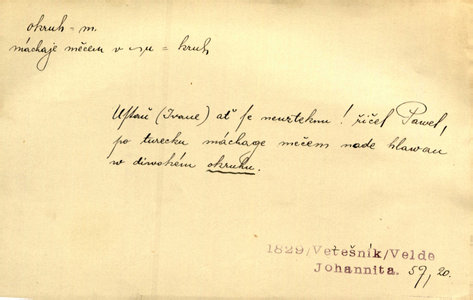 okruh = m.
máchaje mečem v -u = kruh
Ustaň (Ivane) ať se neurteknu! řičel Pawel,
po turecku máchage mečem nade hlawau
w diwokém okruhu.
1829/Vetešník/Velde
Johannita. 59, 20.